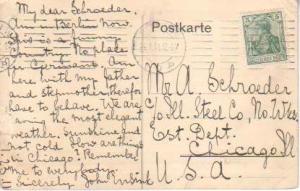 Postkarte
My dear Schroeder.
Am in Berlin now.
This is a funny
country. No place
in Germany. Am
here with my father
and stepmother therefore
have to behave. We are
having the most elegant
weather, sunshine and
not cold. How are things
in Chicago? Remember
me to everybody.
Sincerely John
Mr A. Schroeder
c/o Ill. Steel Co, No. Wks.
Est. Dept.
Chicago Ill
U.S.A.